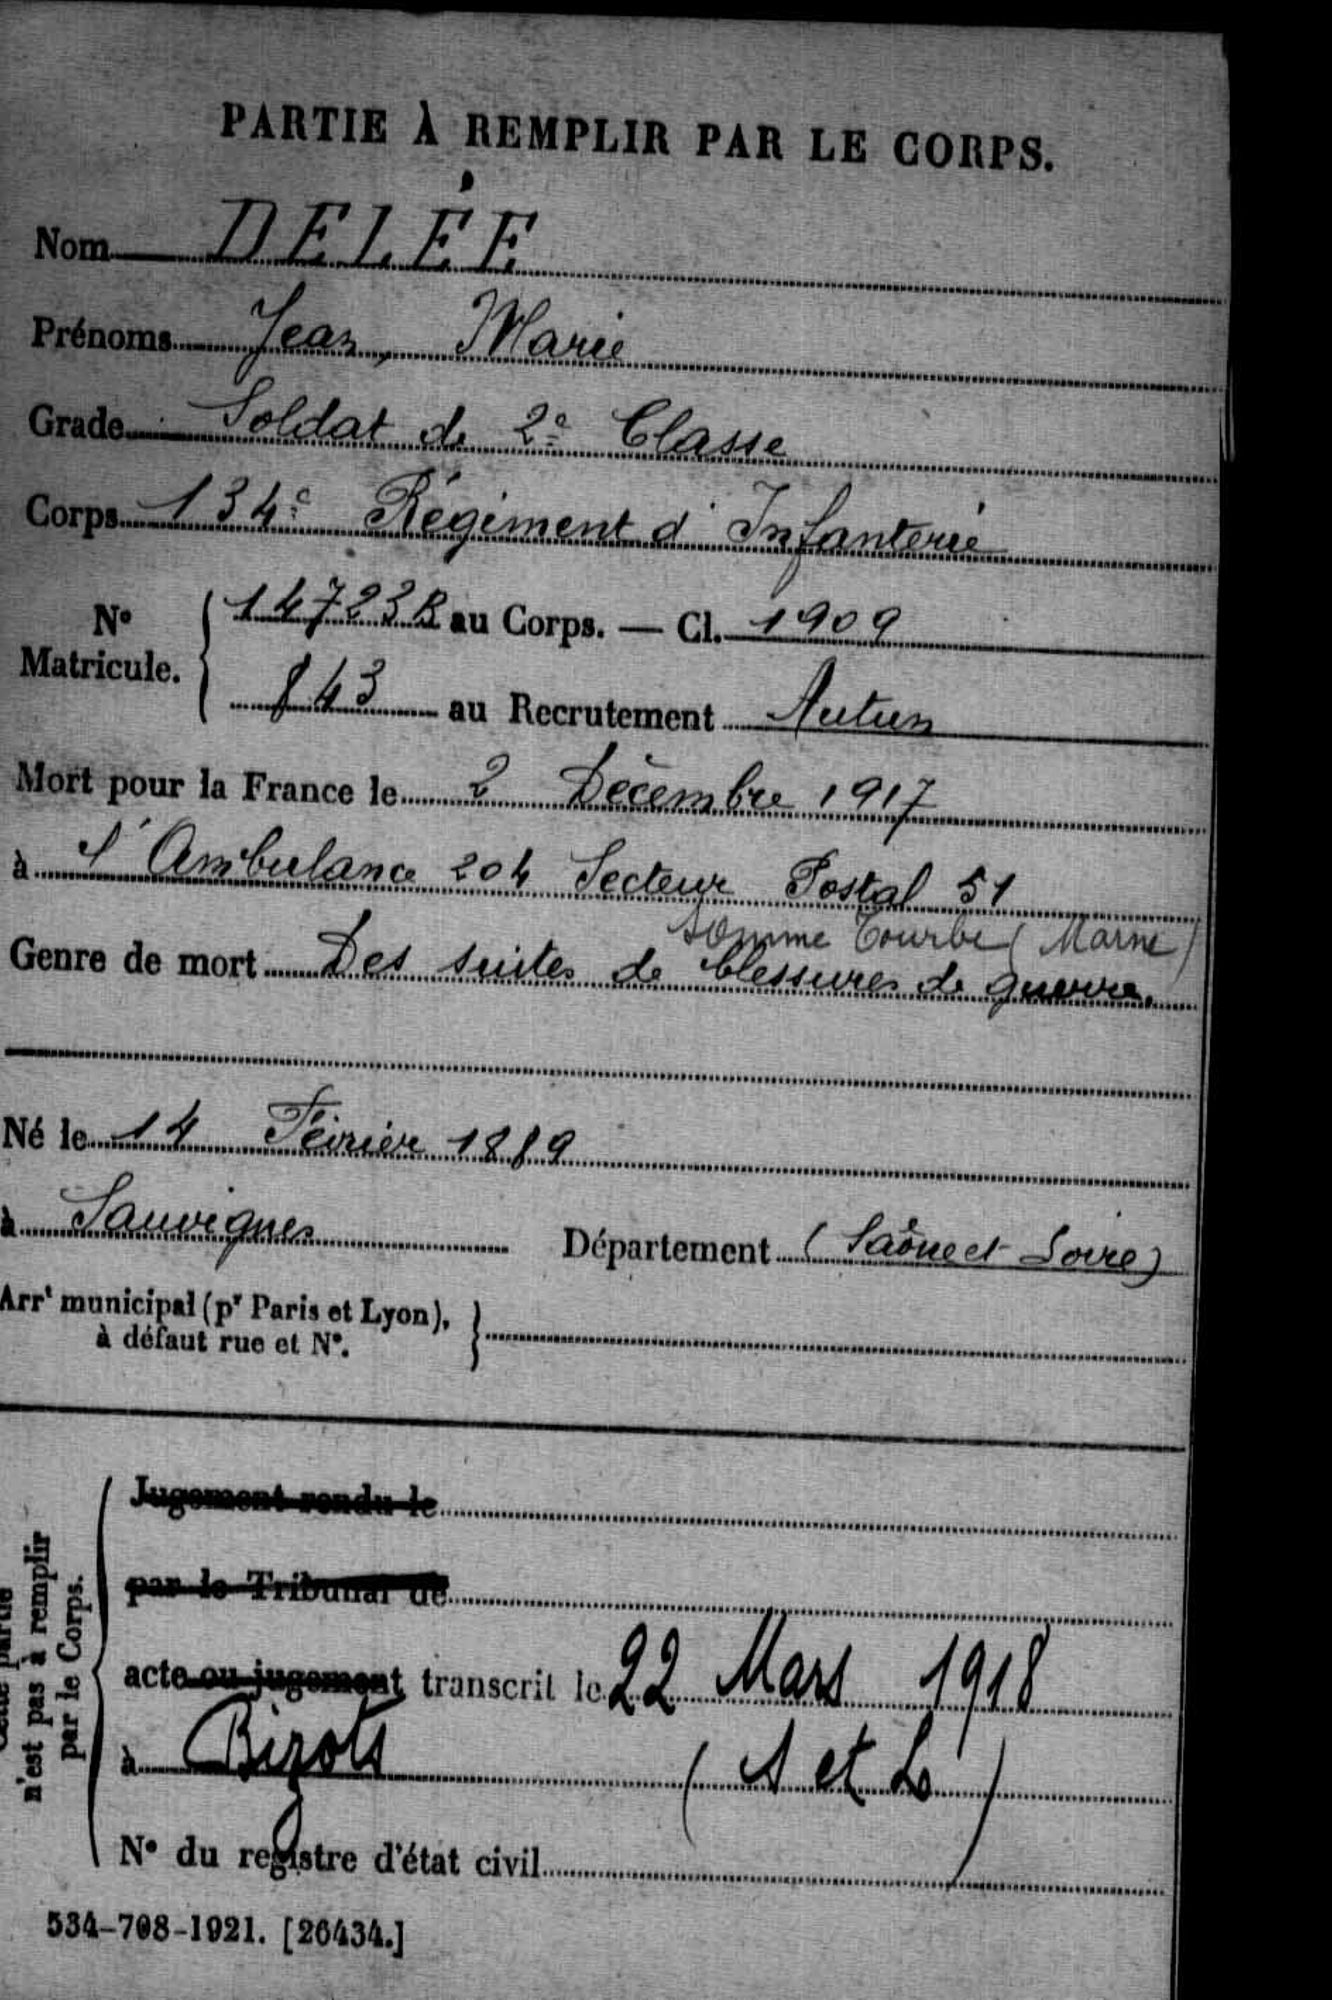 PARTIE À REMPLIR PAR LE CORPS.
Nom DELÉE
Prénoms Jean, Marie
Grade Soldat de 2e Classe
Corps 134e Régiment d'Infanterie
No Matricule. 14723 R au Corps. — Cl. 1909
843 au Recrutement Autun
Mort pour la France le 2 Décembre 1917
à l'Ambulance 204 Secteur Postal 51
Somme Tourbe (Marne)
Genre de mort Des suites de blessures de guerre.
Né le 14 Février 1889
à Sanvignes Département (Saône et Loire)
Arrt municipal (pr Paris et Lyon),
à défaut rue et No.
Cette partie
n'est pas à remplir
par le Corps.
Jugement rendu le
par le Tribunal de
acte ou jugement transcrit le 22 Mars 1918
à Bizots (S et L)
No du registre d'état civil
534-708-1921. [26434.]